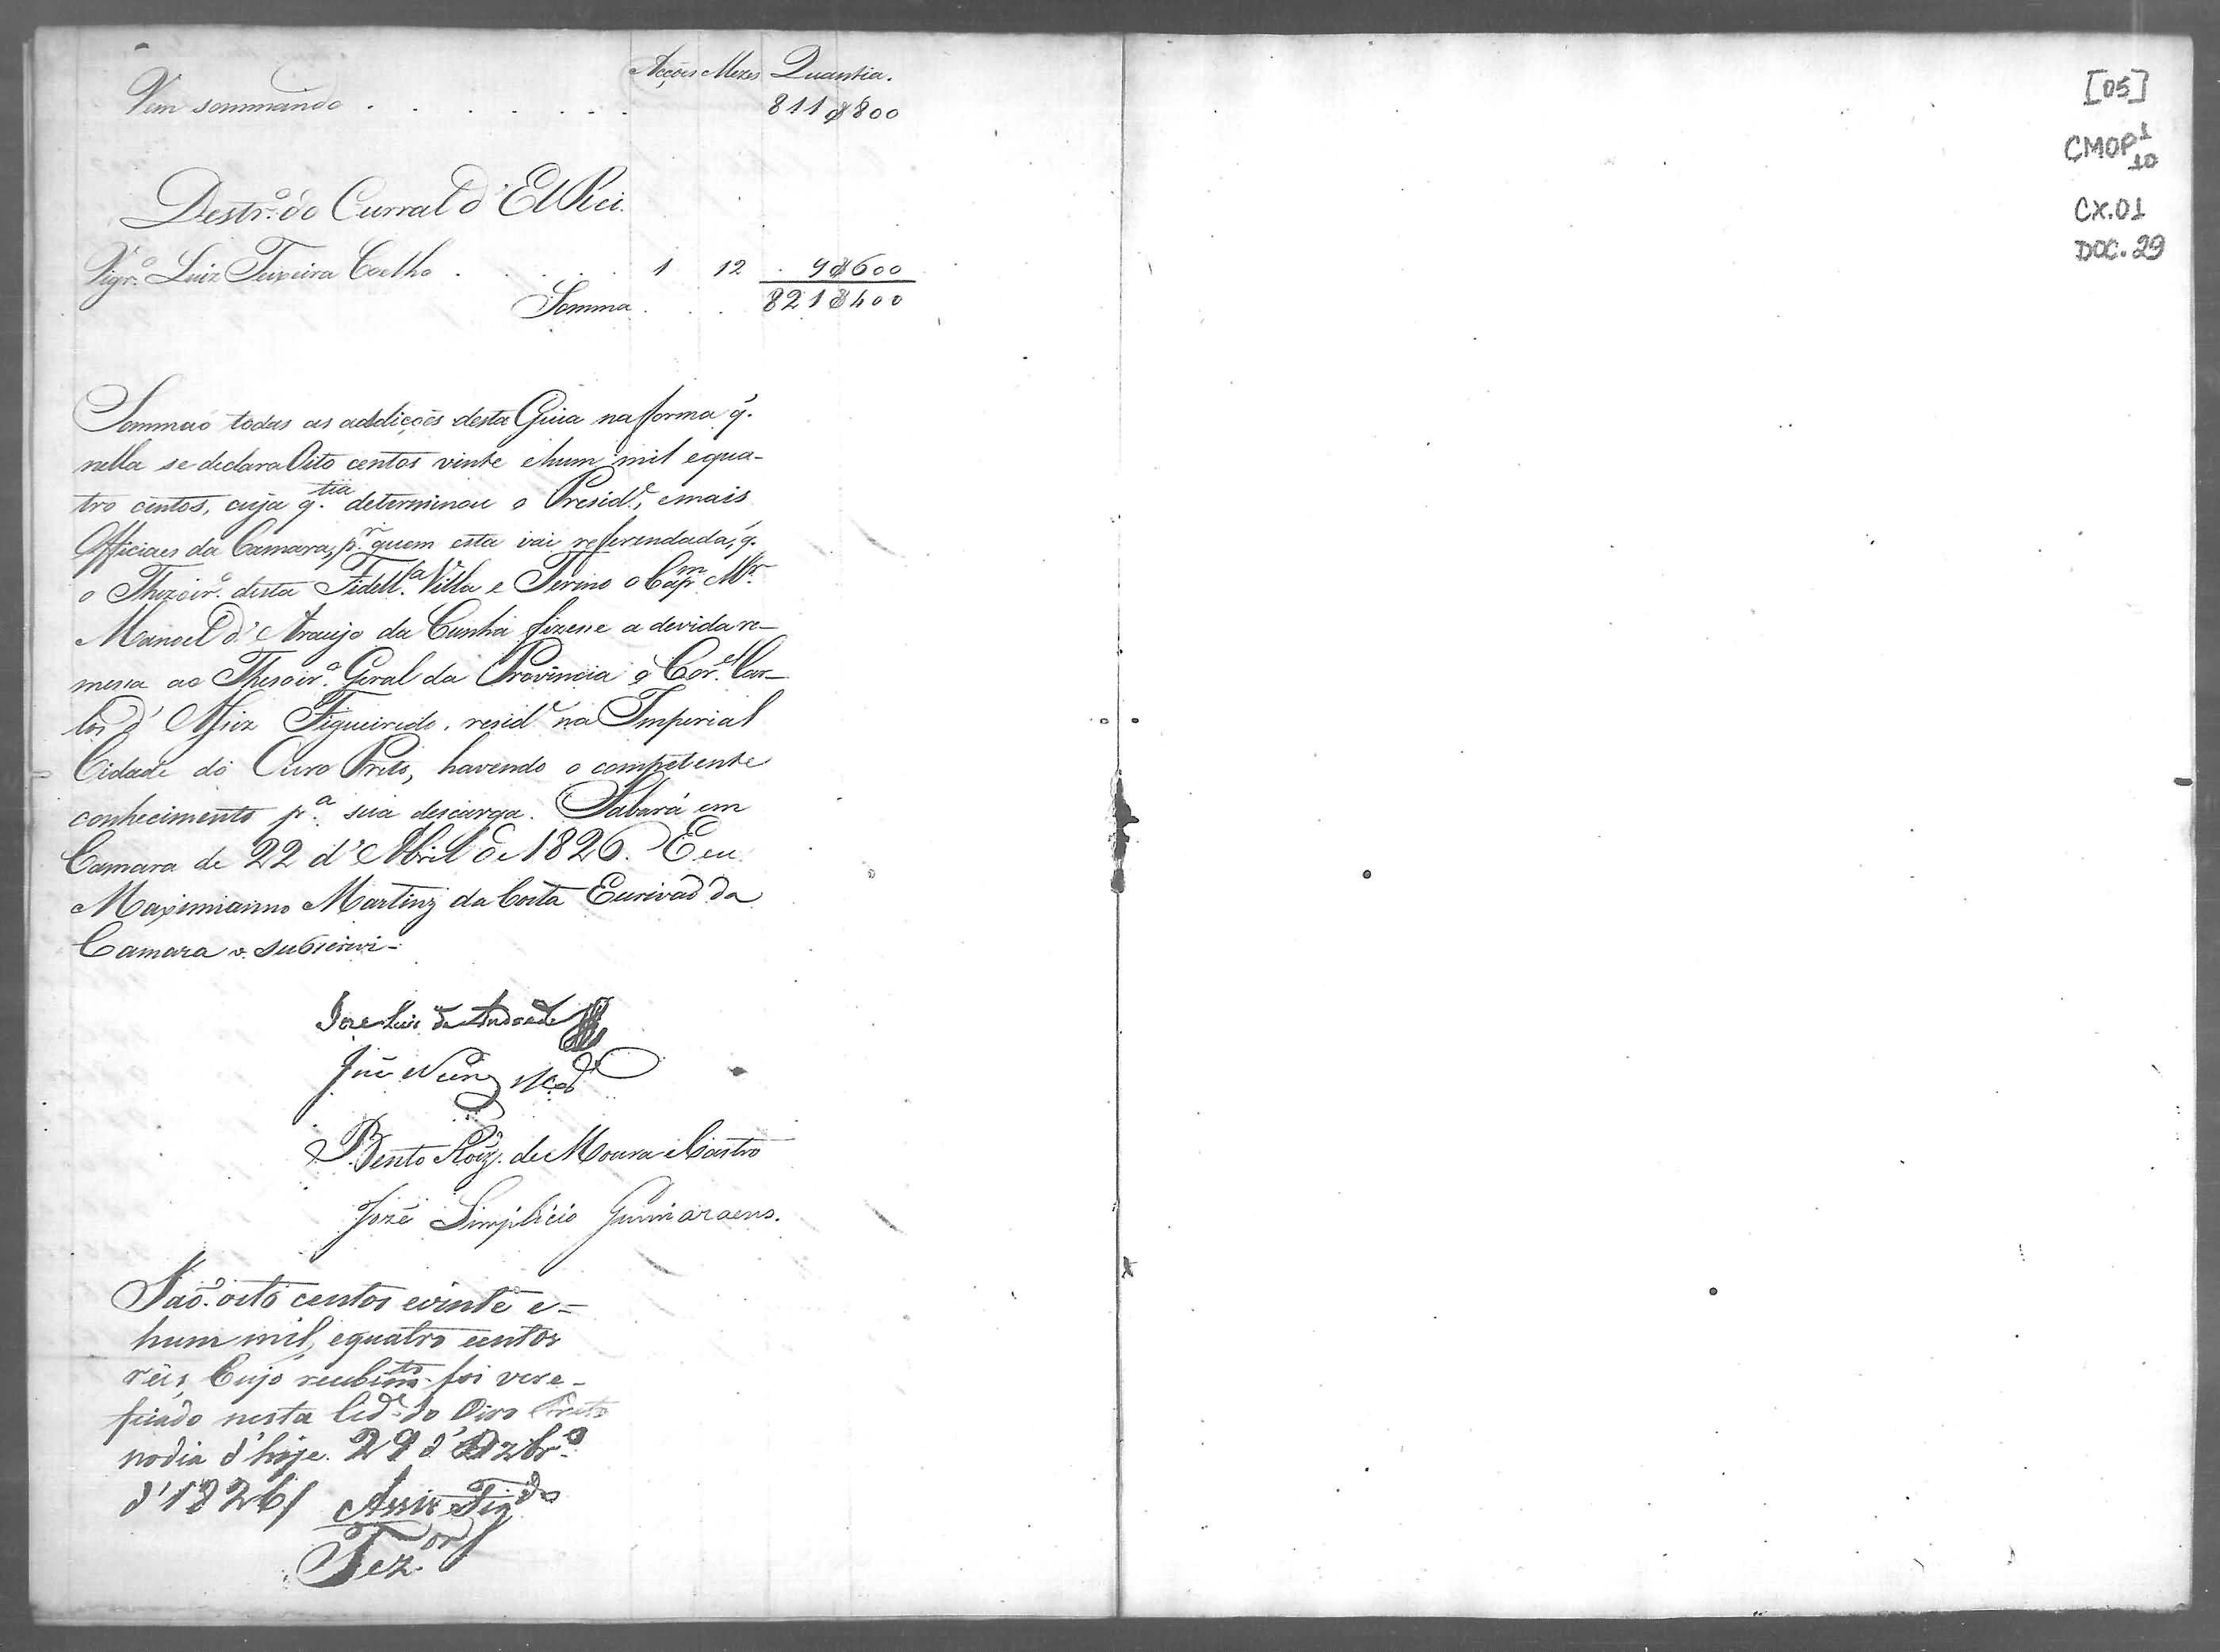 Acções Mezes Quantia.
Vem sommando . . . . . . . 811$800
Destr.º do Curral d'El Rei.
Vigr.º Luiz Teixeira Coelho . . . . 1 12 . 9$600
Somma . . . 821$400
Sommaõ todas as addições desta Guia na forma q̃.
nella se declara Oito centos vinte e hum mil e qua-
tro centos, cuja q.tia determinou o Presid.e, e mais
Officiaes da Camara, p.r quem esta vai referendada, q̃.
o Thezoir.º desta Fidell.a Villa e Termo o Cap.m M.r
Manoel d'Araujo da Cunha fizesse a devida re-
messa ao Thesoir.º Geral da Provincia o Cor.el Car-
los d'Assiz Figueiredo, resid.e na Imperial
Cidade do Ouro Preto, havendo o competente
conhecimento p.a sua descarga. Sabará em
Camara de 22 d'Abril de 1826. E eu
Maximianno Martinz da Costa Escrivaõ da
Camara o subscrevi.
Jose Luis de Andrade
José Nunz
Bento Roiz. de Moura e Castro
José Simplicio Guimaraens.
Saõ oito centos e vinte e=
hum mil, e quatro centos
réis, Cujo recebim.to foi vere-
ficado nesta Cid.e do Oiro Preto
no dia d'hoje. 29 d' Dzbr.º
d'1826/ Assiz Fig.do
Tez.or
[05]
CMOP 1
10
CX.01
DOC.29